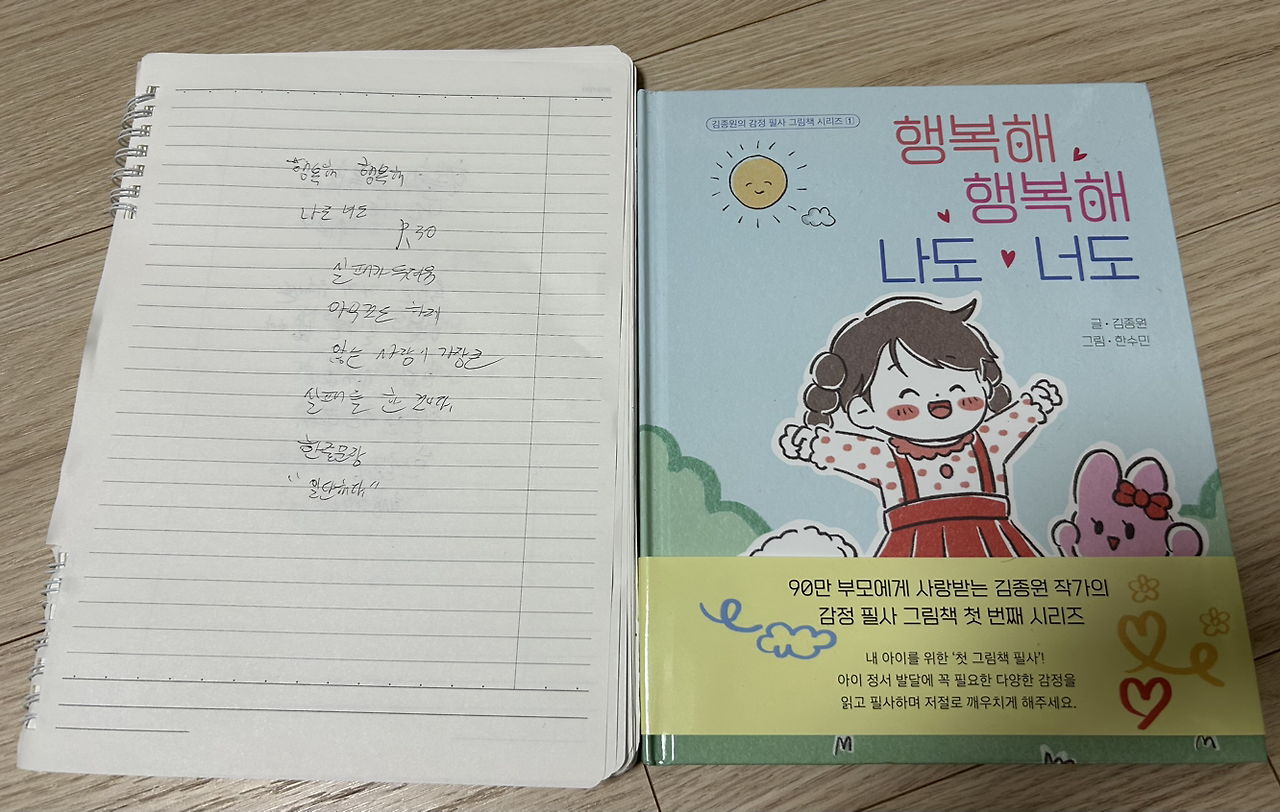 행복해 행복해
나도 너도
P.30
실패가 두려워
아무것도 하지
않는 사람이 가장 큰
실패를 한 겁니다.
한줄문장
"일단해봐"
김종원의 감정 필사 그림책 시리즈 1
행복해
행복해
나도 너도
글·김종원
그림·한수민
90만 부모에게 사랑받는 김종원 작가의
감정 필사 그림책 첫 번째 시리즈
내 아이를 위한 '첫 그림책 필사'!
아이 정서 발달에 꼭 필요한 다양한 감정을
읽고 필사하며 저절로 깨우치게 해주세요.